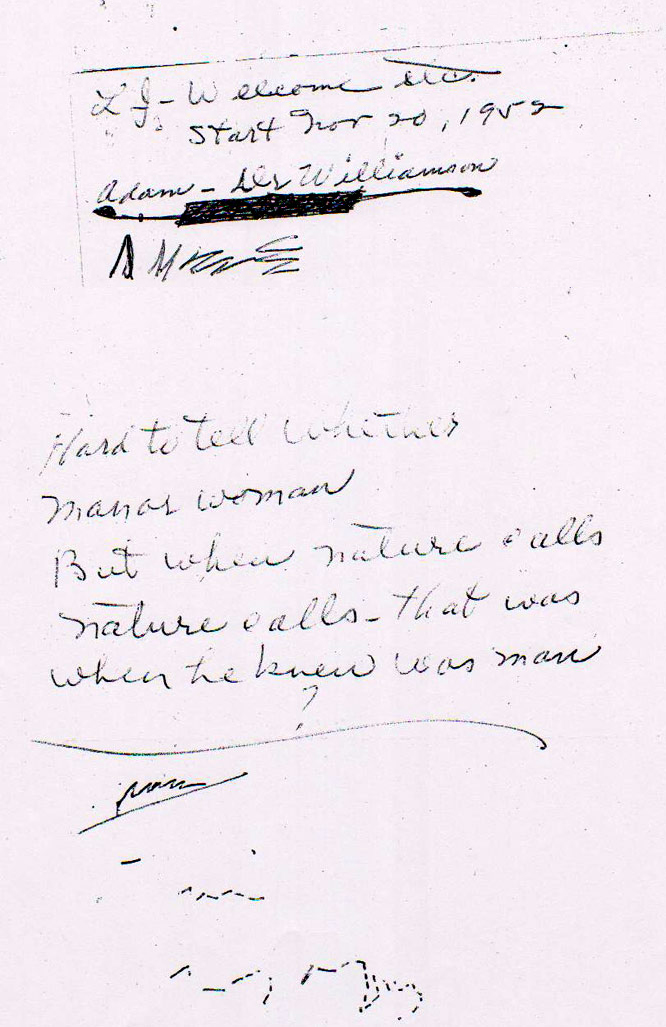 L J - Welcome etc.
Start Nov 20, 1952
Adam - Williamson
Hard to tell whether
man or woman
But when nature calls
nature calls - that was
when he knew was man
?